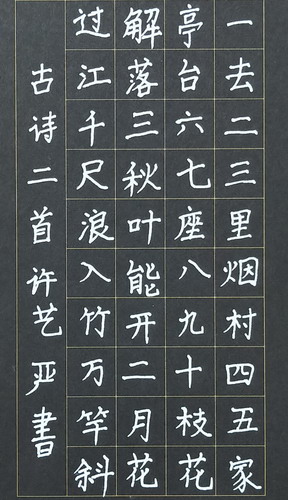 一去二三里烟村四五家
亭台六七座八九十枝花
解落三秋叶能开二月花
过江千尺浪入竹万竿斜
古诗二首许艺严書